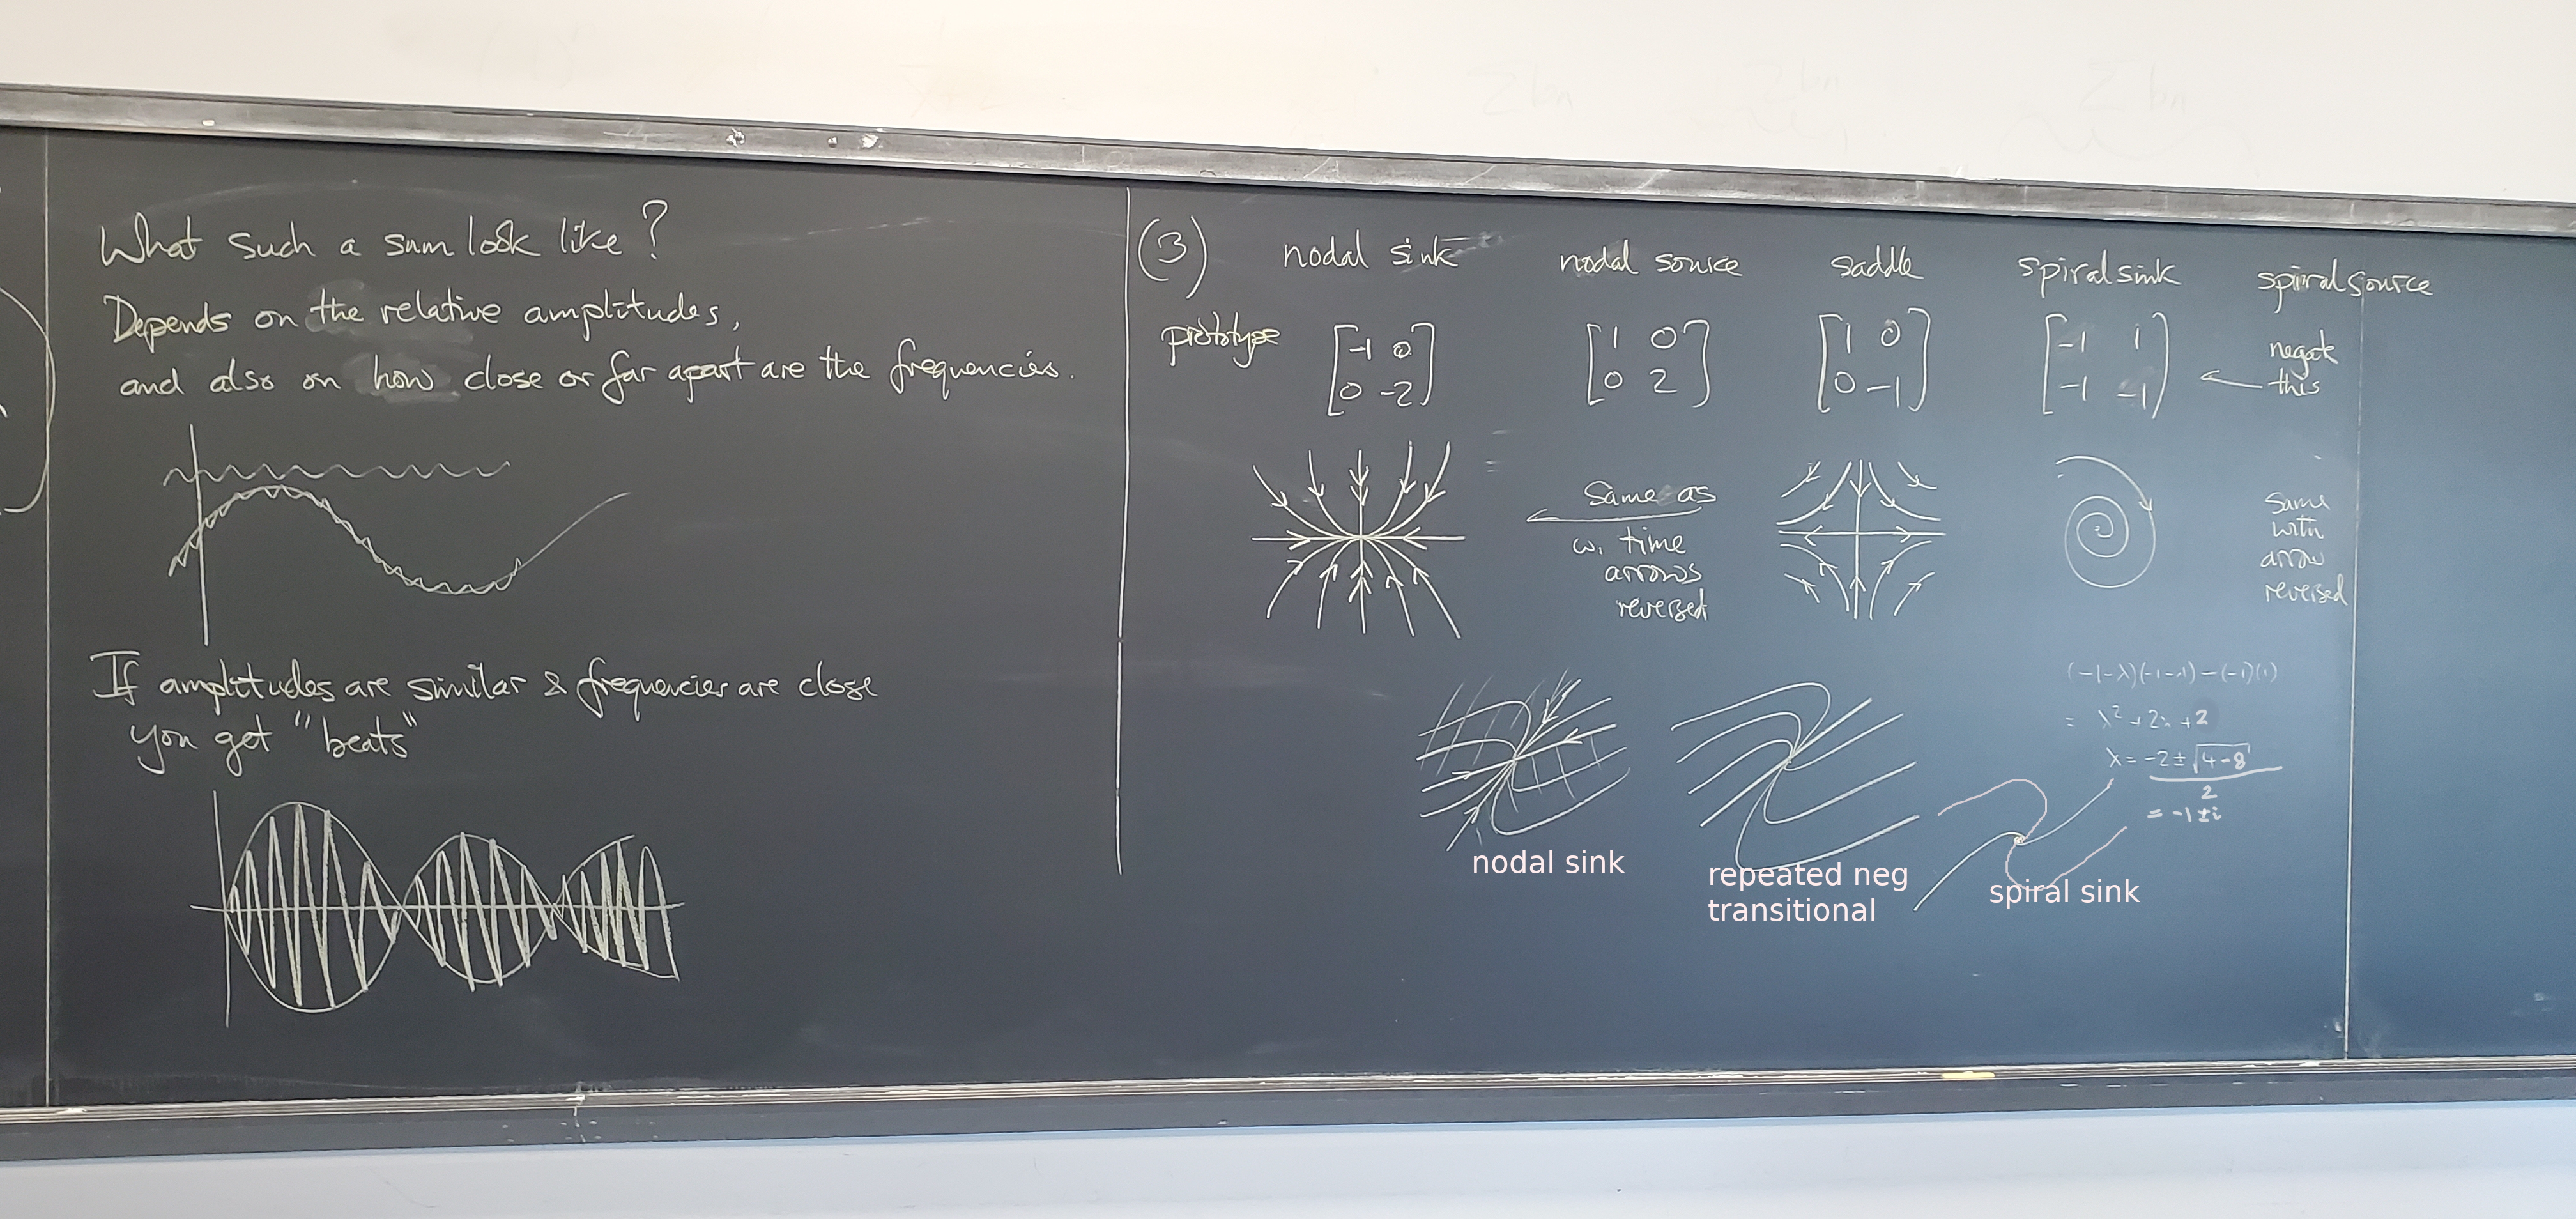 What such a sum look like?
Depends on the relative amplitudes,
and also on how close or far apart are the frequencies.
If amplitudes are similar & frequencies are close
you get "beats"
(3) nodal sink nodal source saddle spiral sink spiral source
prototype [-1 0 [1 0 [1 0 [-1 1 negate
0 -2] 0 2] 0 -1] -1 -1] ← this
Same as
w. time
arrows
reversed
Same
with
arrow
reversed
(-1-λ)(-1-λ)-(-1)(1)
= λ² + 2λ + 2
λ = -2 ± √4-8
2
= -1 ± i
nodal sink
repeated neg
transitional
spiral sink